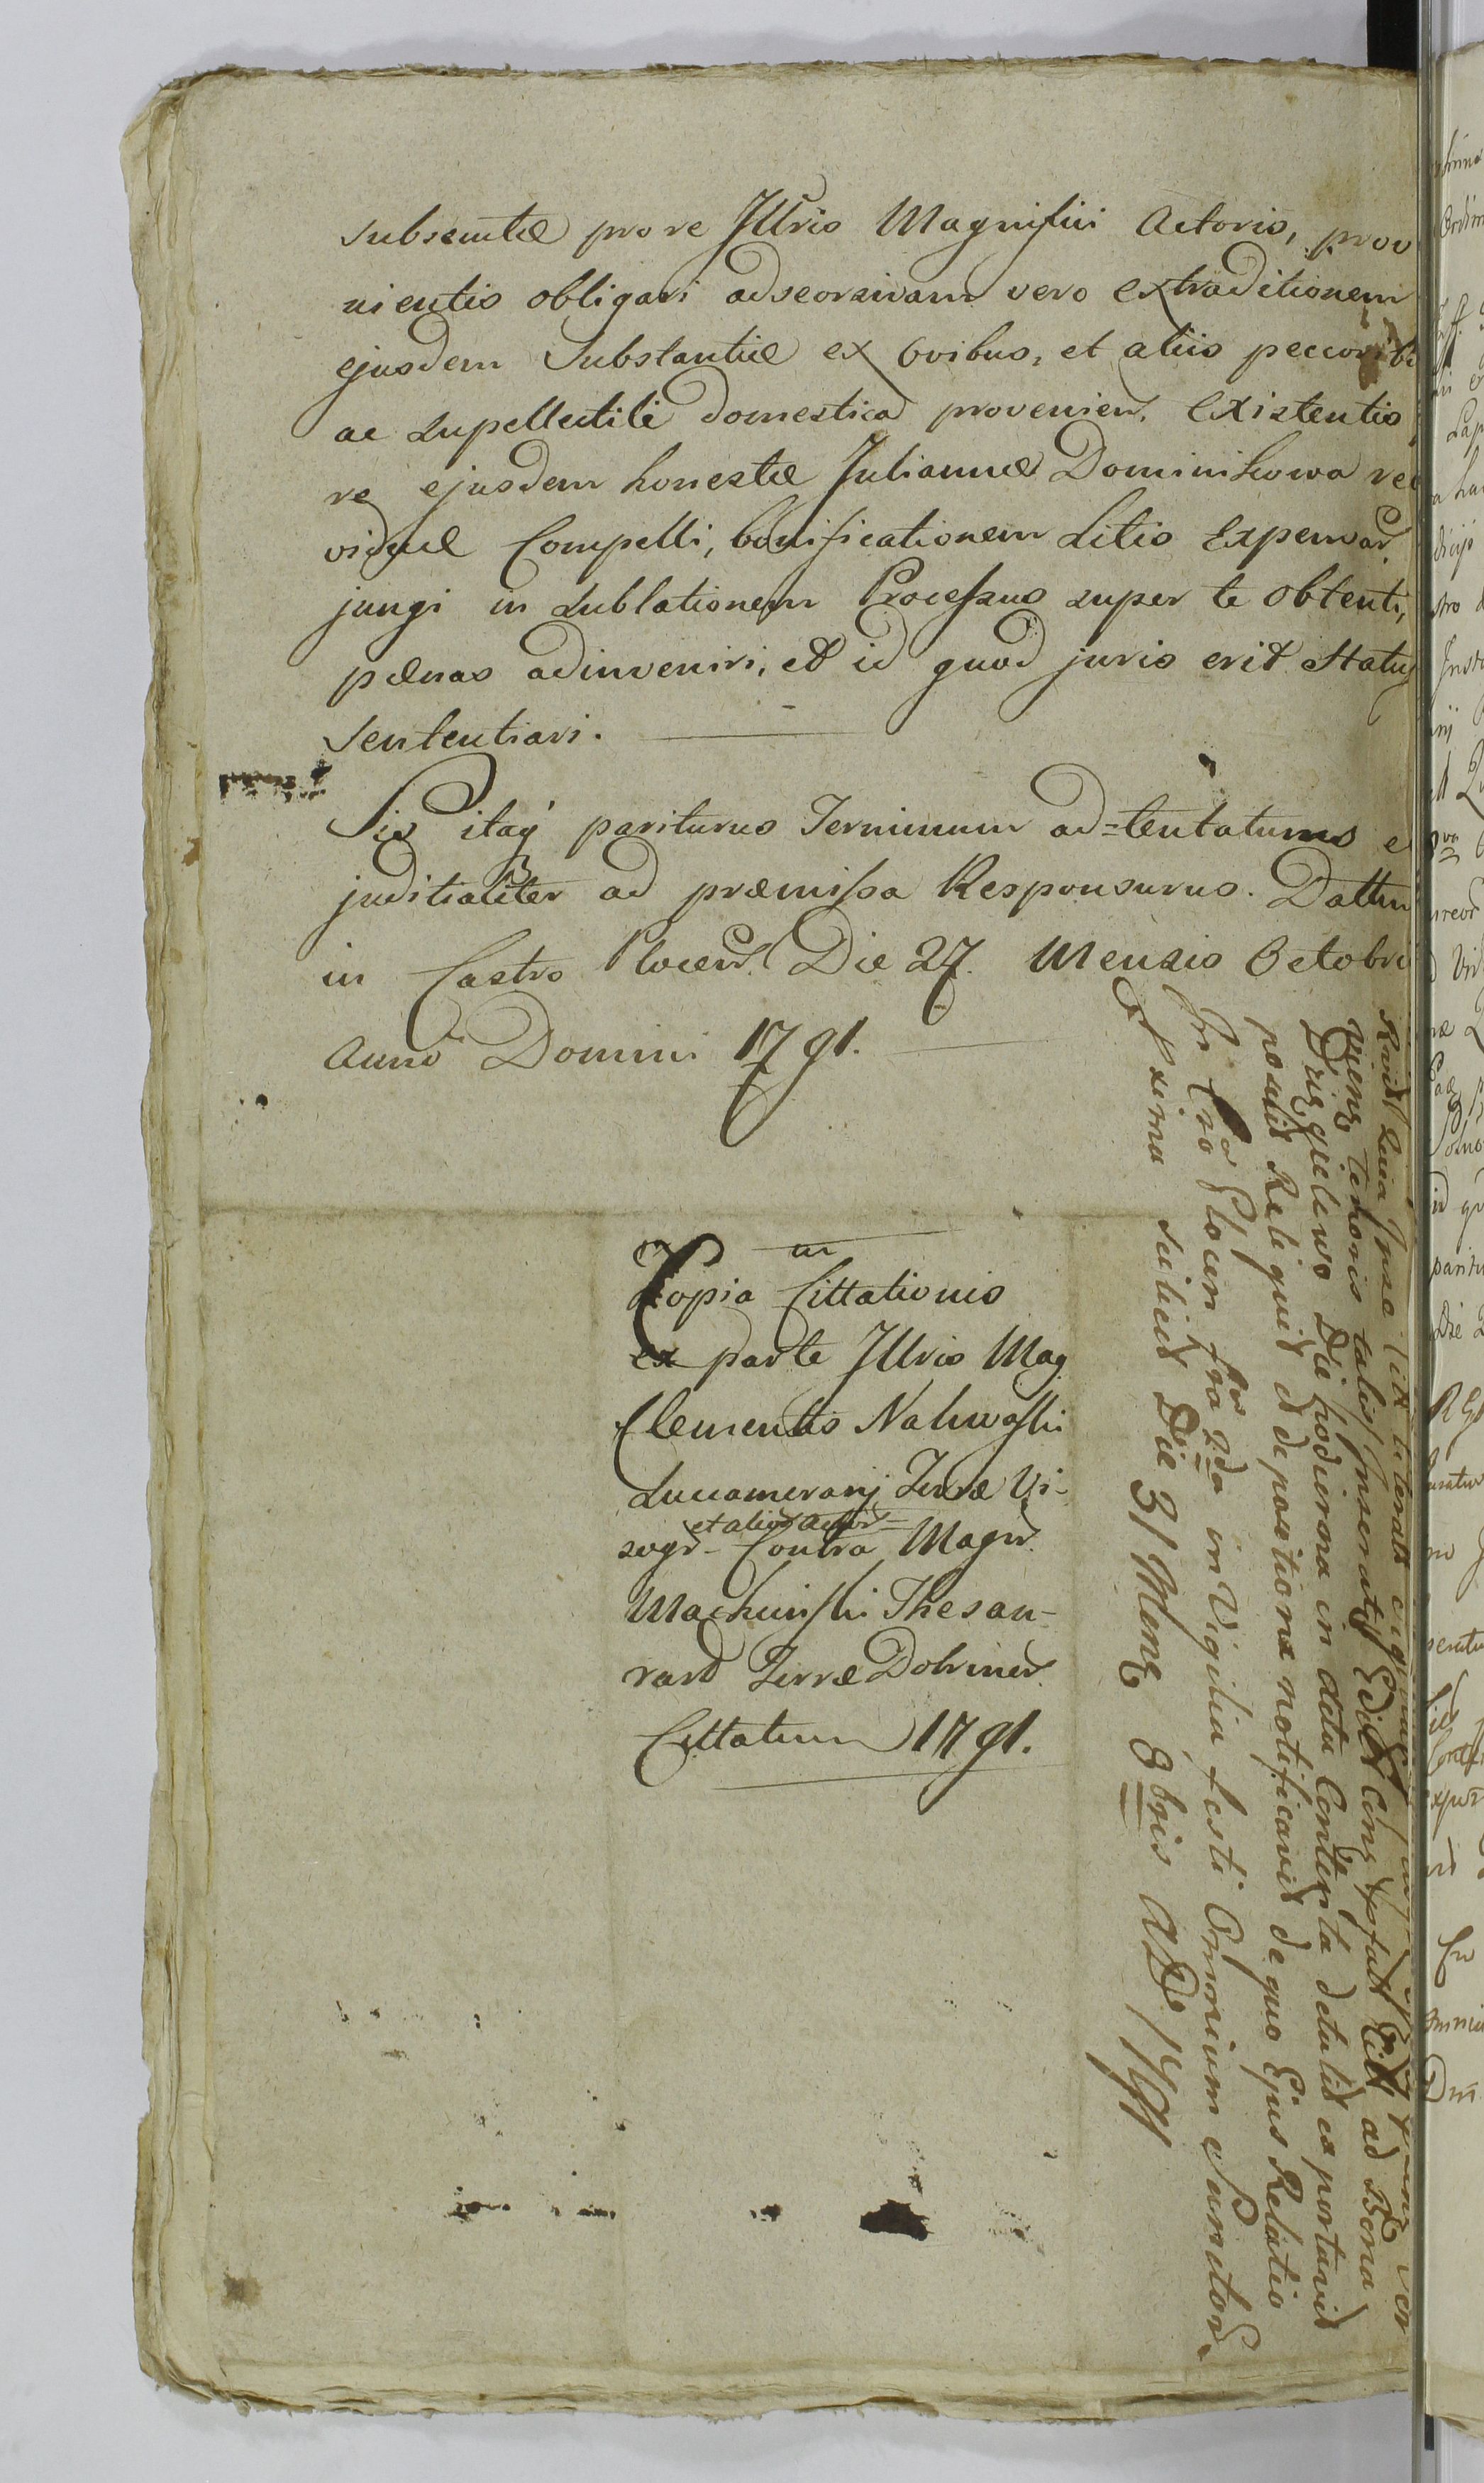 subscuntæ pro re Jllris Magnifici Actoris, prov
nientis obligari adseorsivam vero extraditionem
ejusdem Substantiæ ex bovibus, et aliis peccoribu
ac supellectili domestica provenien. Existentis
re ejusdem honestæ Juliannæ Dominikowa rel
viduæ Compelli, bonificationem Litis Expensar.
jungi in sublationem Processus super te obtenti,
pænas adinveniri, et id quod juris erit Statui
Sententiari.
Sis itaq pariturus Terminum ad=tentaturus e
juditialiter ad præmissa Responsurus. Dattum
in Castro Plocen. Die 27. Mensis Octobri
Anno Domini 1791.
Kopia Cittationis
ex parte Jllris Mag.
Clementis Nakwaski
Succamerarij Terræ Vi-
et alior. actor.
sogr- Contra Magn.
Machciński Thesau-
rarb Terræ Dobrinen.
Cittatum 1791.
viens tenoris talis Inserati Edict Cons ad Bona
Drięgielewo Die hodierna in dictu Contenta detulit ex portavit
positis Reliquit d depositione notificavit de quo Ejus Relatio
In Cro Plocen fra 2da in Vigilia festi Omnium Sanctor.
Pxima scilicet Die 31 Mens 8bris ADo 1791